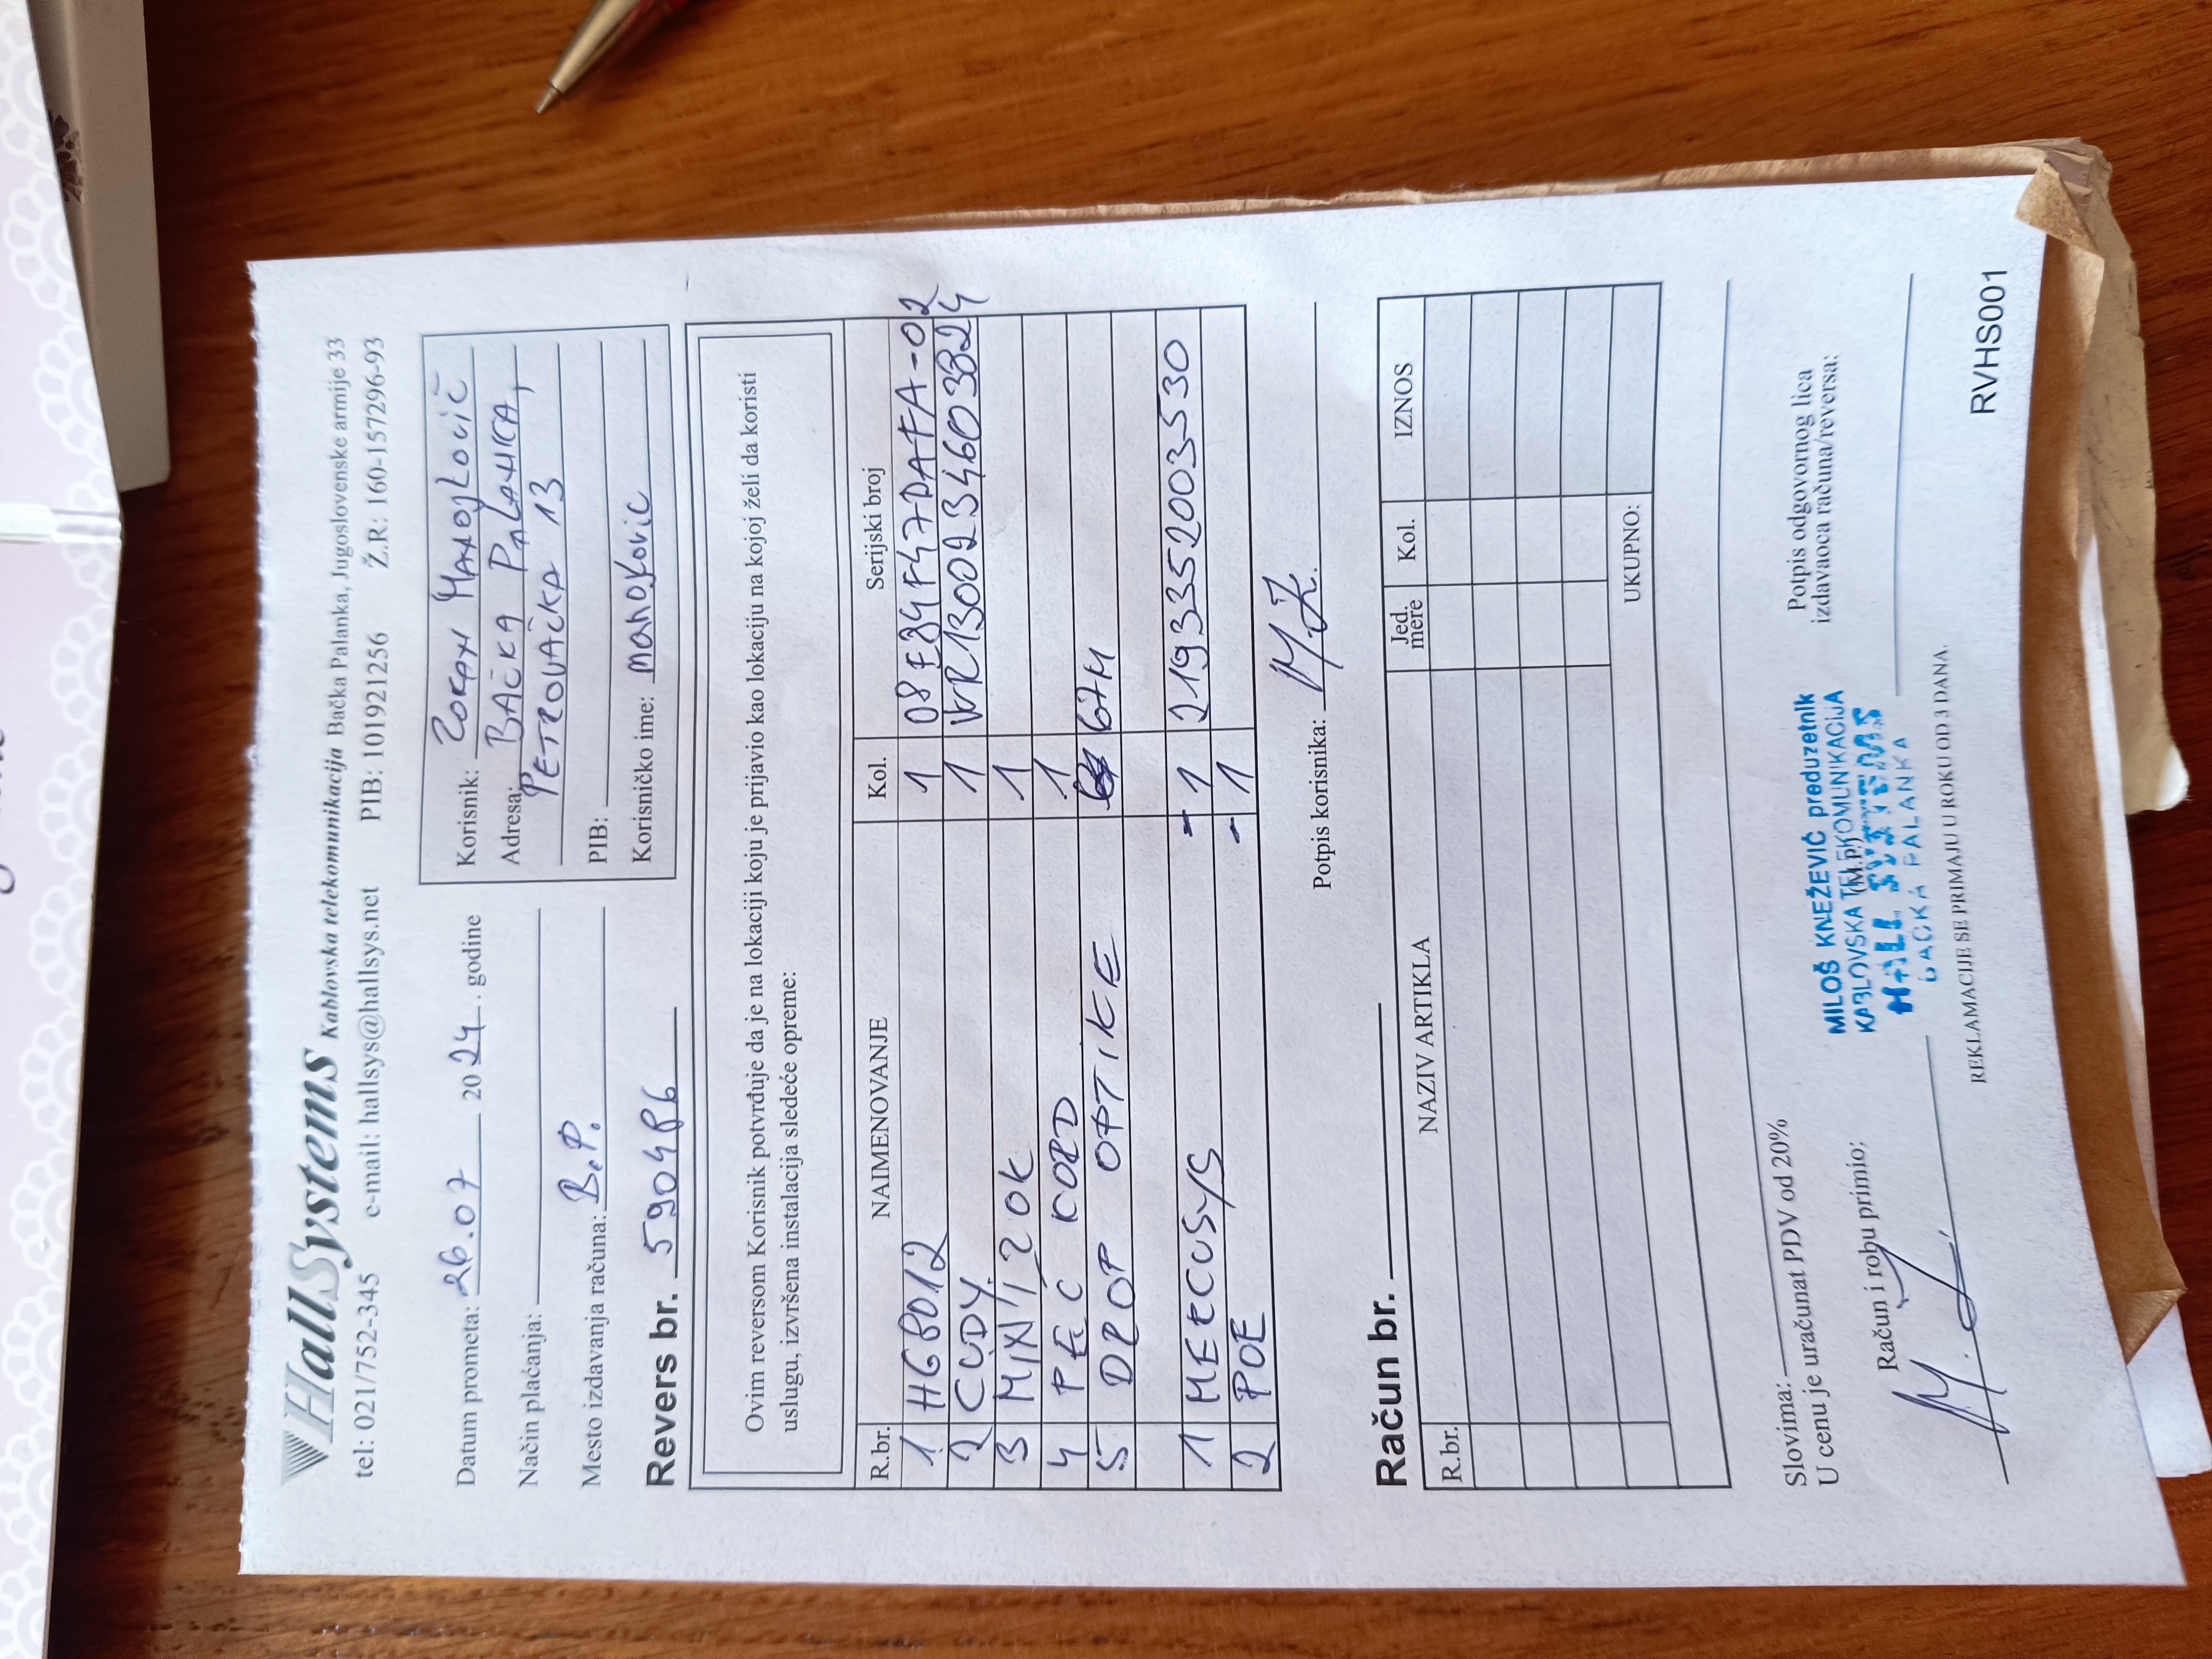 HallSystems Kablovska telekomunikacija Bačka Palanka, Jugoslovenske armije 33
tel: 021/752-345 e-mail: hallsys@hallsys.net PIB: 101921256 Ž.R: 160-157296-93
Datum prometa: 26.07 2024. godine
Način plaćanja:
Mesto izdavanja računa: B.P.
Korisnik: ZORAN MANOJLOVIĆ
Adresa: BAČKA PALANKA,
PETROVAČKA 13
PIB:
Korisničko ime:
Revers br. 590486
Ovim reversom Korisnik potvrđuje da je na lokaciji koju je prijavio kao lokaciju na kojoj želi da koristi
uslugu, izvršena instalacija sledeće opreme:
R.br. NAIMENOVANJE Kol. Serijski broj
1 HG8012 1
2 CUDY 1
3 MINI ZOK 1
4 PEČ KORD 1
5 DROP OPTIKE 67M
1 MERCUSYS - 1 2193352003530
2 POE - 1
Potpis korisnika:
Račun br.
R.br. NAZIV ARTIKLA Jed. mere Kol. IZNOS
UKUPNO:
Slovima:
U cenu je uračunat PDV od 20%
Račun i robu primio:
MILOŠ KNEŽEVIĆ preduzetnik
KABLOVSKA TELEKOMUNIKACIJA
(M.P.)
HALL SYSTEMS
BAČKA PALANKA
Potpis odgovornog lica
izdavaoca računa/reversa:
REKLAMACIJE SE PRIMAJU U ROKU OD 3 DANA.
RVHS001